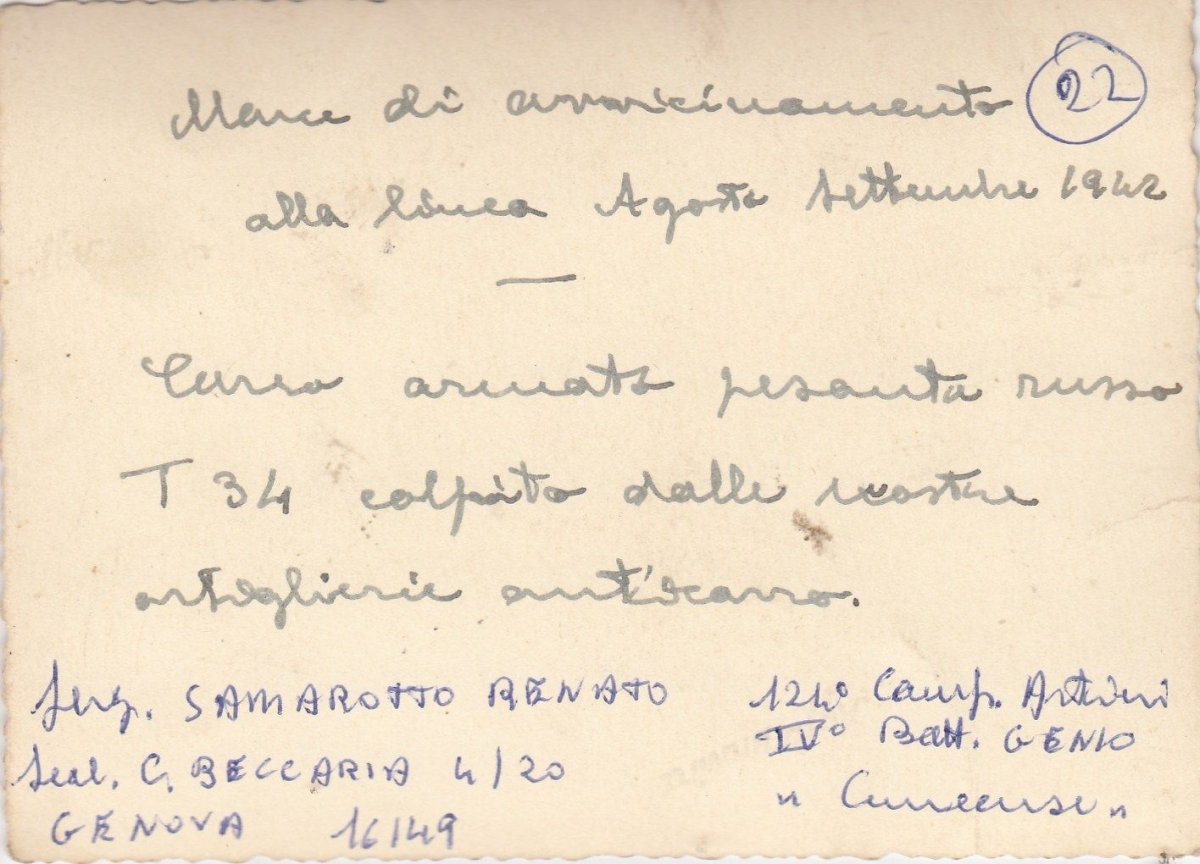 Marce di avvicinamento 22
alla linea Agosto Settembre 1942
—
Carro armato pesante russo
T 34 colpito dalle nostre
artiglierie anticarro.
Serg. SAMAROTTO RENATO
Scal. C. BECCARIA 4/20
GENOVA 16149
124° Comp. Artieri
IV° Batt. GENIO
" Cuneense "